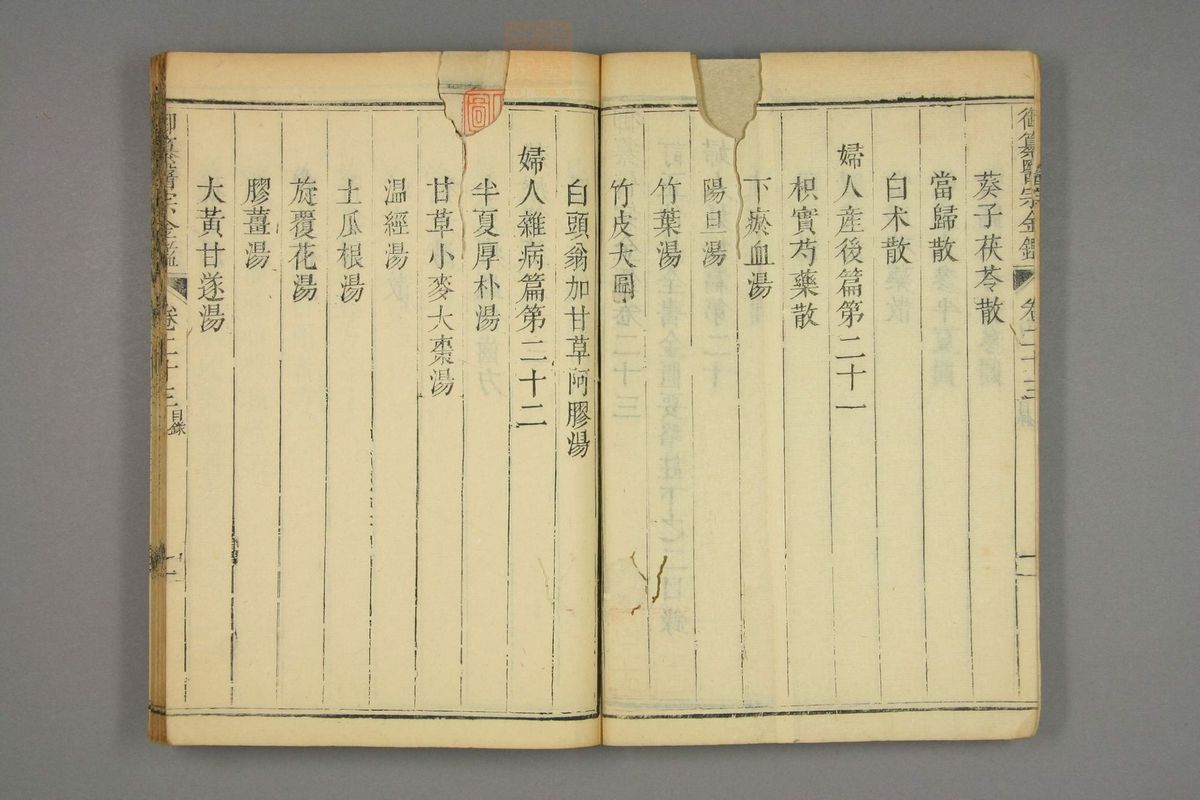 御纂醫宗金鑑 卷二十三
葵子茯苓散
當歸散
白朮散
婦人産後篇第二十一
枳實芍藥散
下瘀血湯
陽旦湯
竹葉湯
竹皮大圓
白頭翁加甘草阿膠湯
婦人雜病篇第二十二
半夏厚朴湯
甘草小麥大棗湯
温經湯
土瓜根湯
旋覆花湯
膠薑湯
大黃甘遂湯
御纂醫宗金鑑 卷二十三 目錄 二